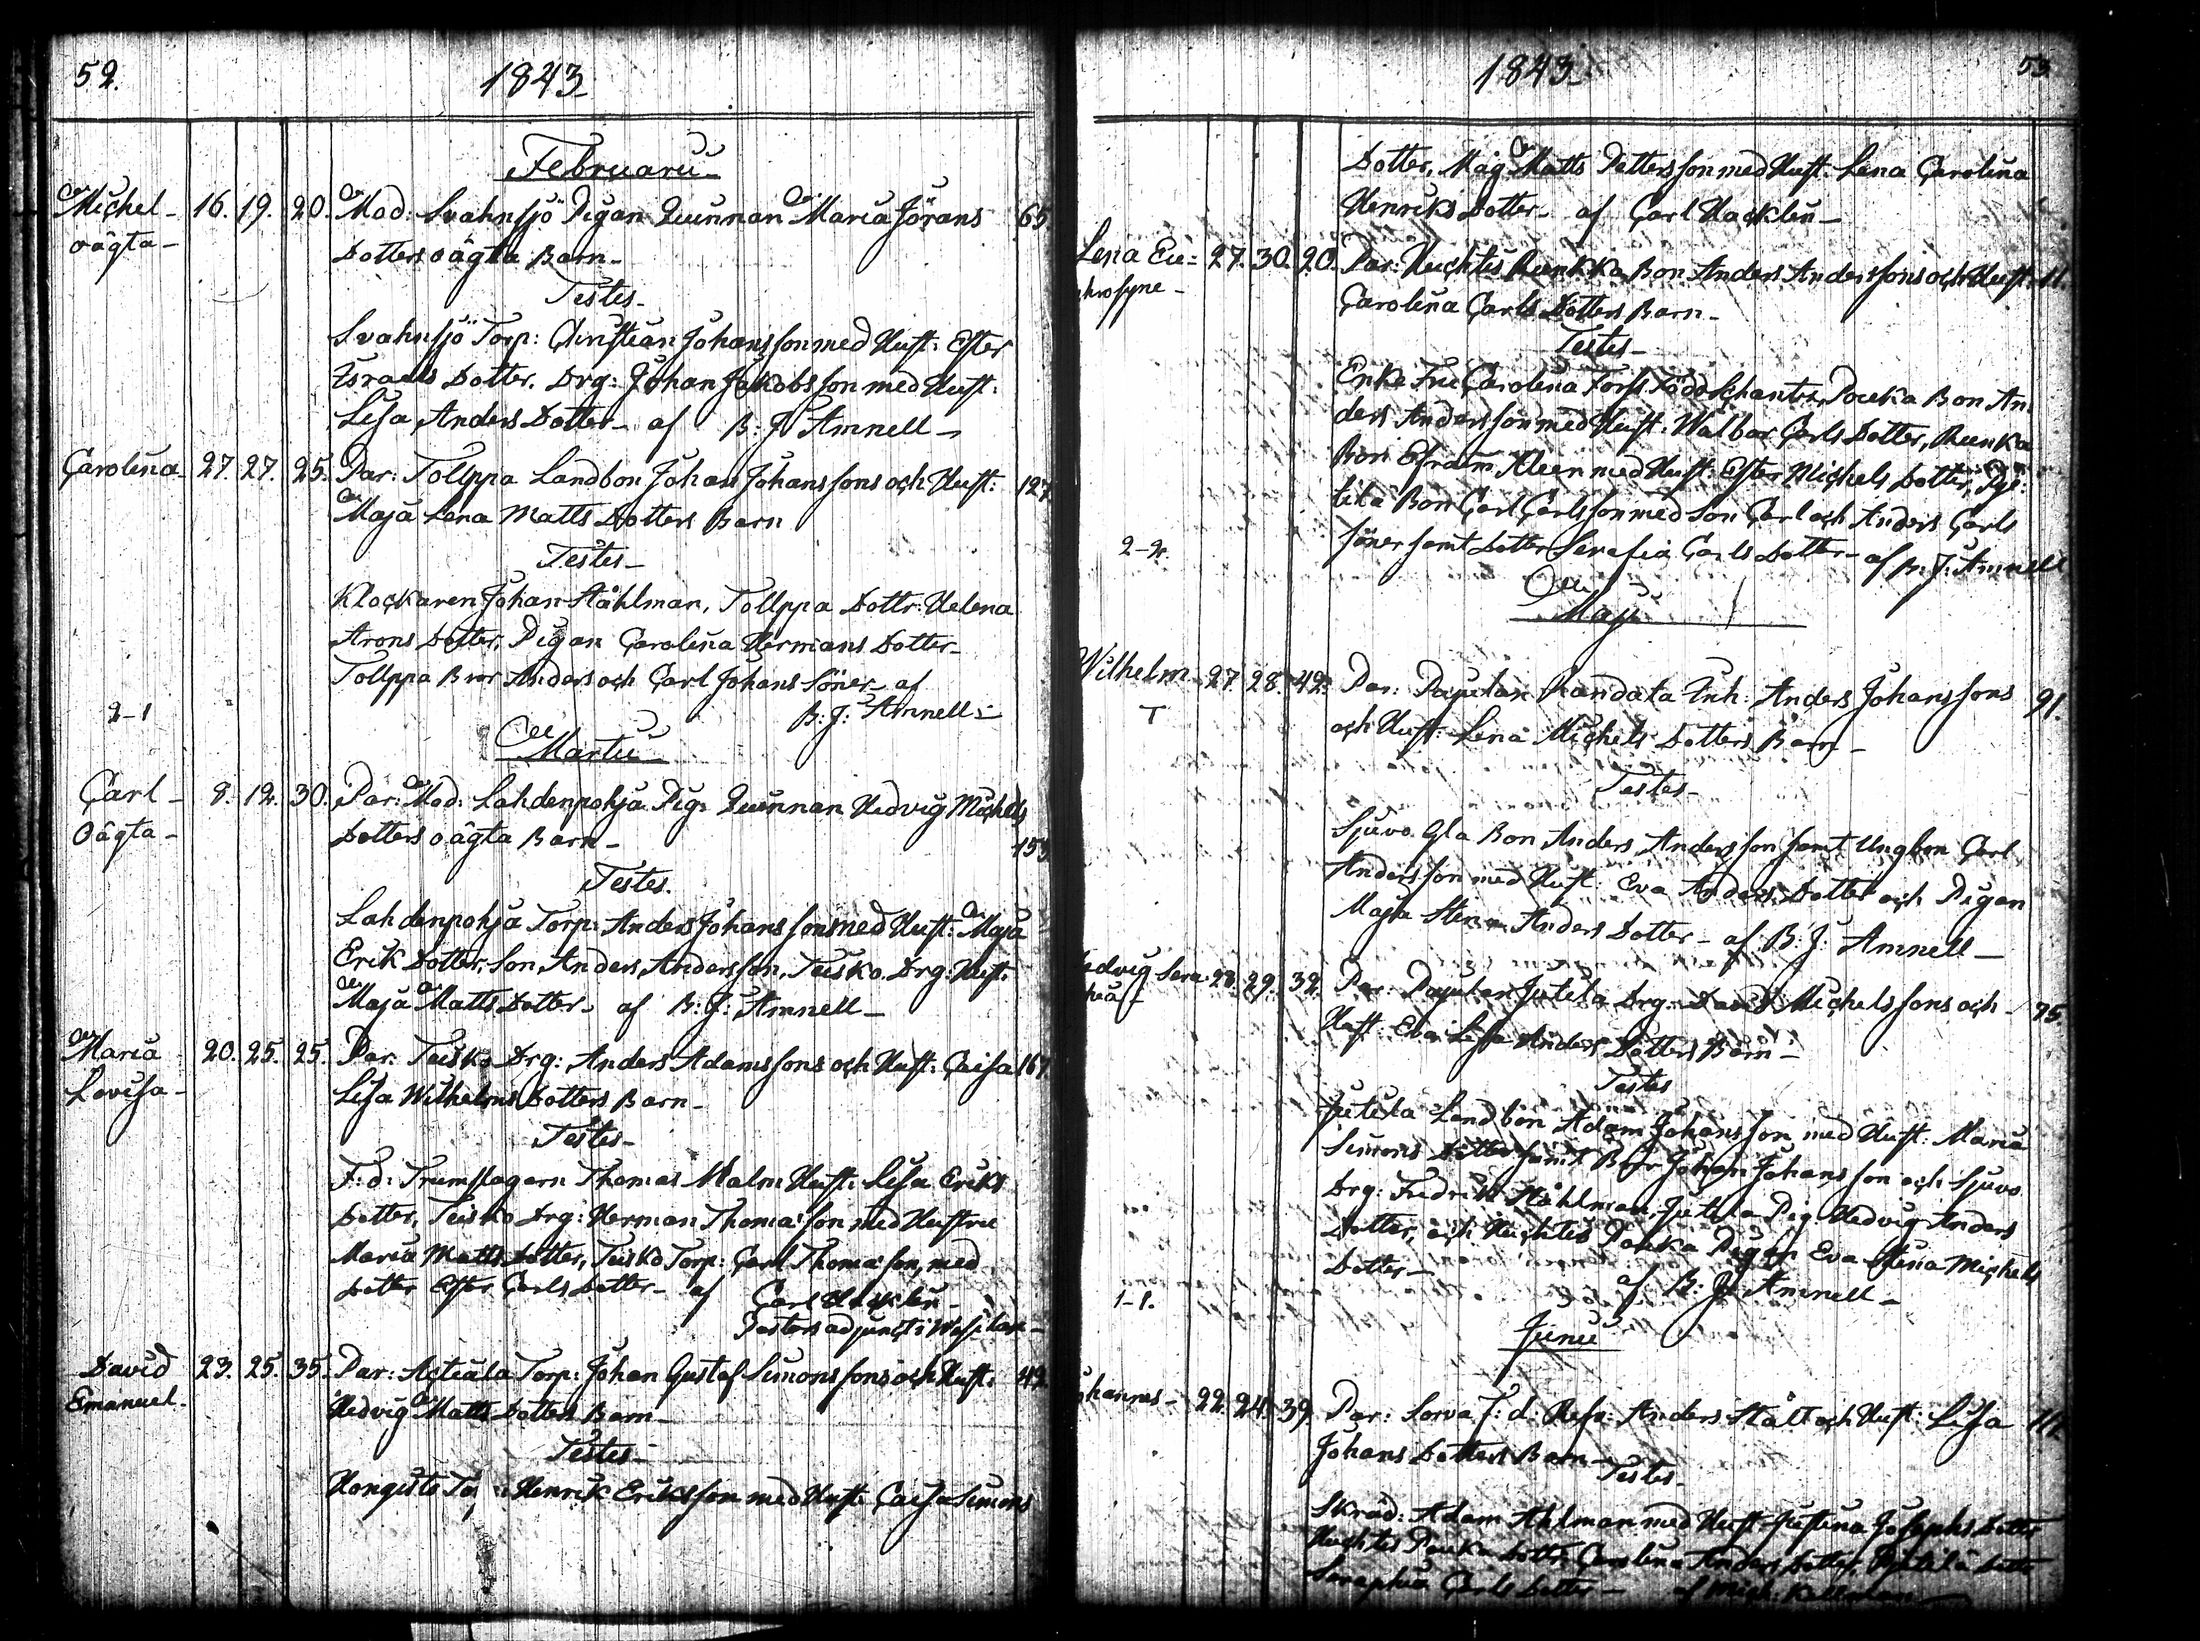 52.
1843.
Februarii
Michel – 16. 19. 20. Mod: Svahnsjö Pigan Quinnan Maria Jörans 65.
oägta – Dotters oägta Barn –
Testes –
Svahnsjö Torp: Christian Johansson med Hust: Ester
Israels Dotter. Drg: Johan Jakobsson med Hust:
Lisa Anders Dotter – af B: J: Amnell –
Carolina – 27. 27. 25. Par: Tollppa Landbon Johan Johanssons och Hust: 127
Maja Lena Matts Dotters Barn
Testes –
Klockaren Johan Ståhlman, Tollppa Dottr: Helena
Arons Dotter, Pigan Carolina Hermans Dotter –
Tollppa Bror Anders och Carl Johans Söner – af
2–1 B: J: Amnell –
Martii
Carl – 8. 12. 30. Par: Mod: Lahdenpohja Pig: Quinnan Hedvig Michels
Oägta – Dotters oägta Barn – 153
Testes.
Lahdenpohja Torp: Anders Johansson med Hust: Maja
Erik Dotter, Son Anders Andersson, Teisko Drg: Hust:
Maja Matts Dotter – af B: J: Amnell –
Maria 20. 25. 25. Par: Teisko Drg: Anders Adamssons och Hust: Caisa 167.
Lovisa – Lisa Wilhelms Dotters Barn –
Testes –
F: d: Trumslagarn Thomas Malm Hust: Lisa Eriks
Dotter, Teisko Drg: Herman Thomasson med Hustru
Maria Matts Dotter, Teisko Torp: Carl Thomasson, med
Dotter Ester Carls Dotter – af Carl Hacklin –
Pastors adjunct i
David 23. 25. 35. Par: Torp: Johan Gustaf Simonssons och Hust: 42
Emanuel. Hedvig Matts Dotters Barn –
Testes –
Hongisto Henrik Eriksson med Hust: Caisa Simons
1843.
53
Dotter, Måg Matts Pettersson med Hust: Lena Carolina
Henriks Dotter – af Carl Hacklin –
Lena Eu= 27. 30. 20. Par: Huchtis Runkka Bon Anders Anderssons och Hust: 11.
phrosyne – Carolina Carls Dotters Barn –
Testes –
Enke Fru Carolina Född Pouka Bon An
ders Andersson med Hust: Walbor Carls Dotter, Runka
Bon Efraim Kleen med Hust: Ester Michels Dotter,
tila Bon Carl Carlsson med Son Carl och Anders Carls
2–2. Söner samt Dotter Serafia Carls Dotter – af B: J: Amnell
Maji
Wilhelm 27. 28. 42. Par: Inh: Anders Johanssons 91.
T och Hust: Lena Michels Dotters Barn –
Testes –
Sjuvo Bon Anders Andersson samt Ungbon Carl
Andersson med Hust: Eva Anders Dotter och Pigan
Maja Stina Anders Dotter – af B: J: Amnell –
Hedvig Sera= 28. 29. 32. Par: Jutila Drg: David Michelssons och 75.
Hust: Eva Lisa Anders Dotters Barn –
Testes
Jutila Landbon Adam Johansson med Hust: Maria
Simons Dotter samt Bror Johan Johansson och Sjuvo
Drg: Fredrik Ståhlman, Jutila Pig: Hedvig Anders
Dotter, och Huchtis Pouka Pigan Eva Stina Michels
Dotter –
1–1. af B: J: Amnell –
Junii
Johannes – 22. 24. 39. Par: Sorva F: d: Anders Stålt och Hust: Lisa 111.
Johans Dotters Barn –
Testes –
Skräd: Adam Ahlman med Hust: Justina Josephs Dotter
Huchtis Pouka Dotter Carolina Anders Dotter, Dotter
Seraphia Carls Dotter –